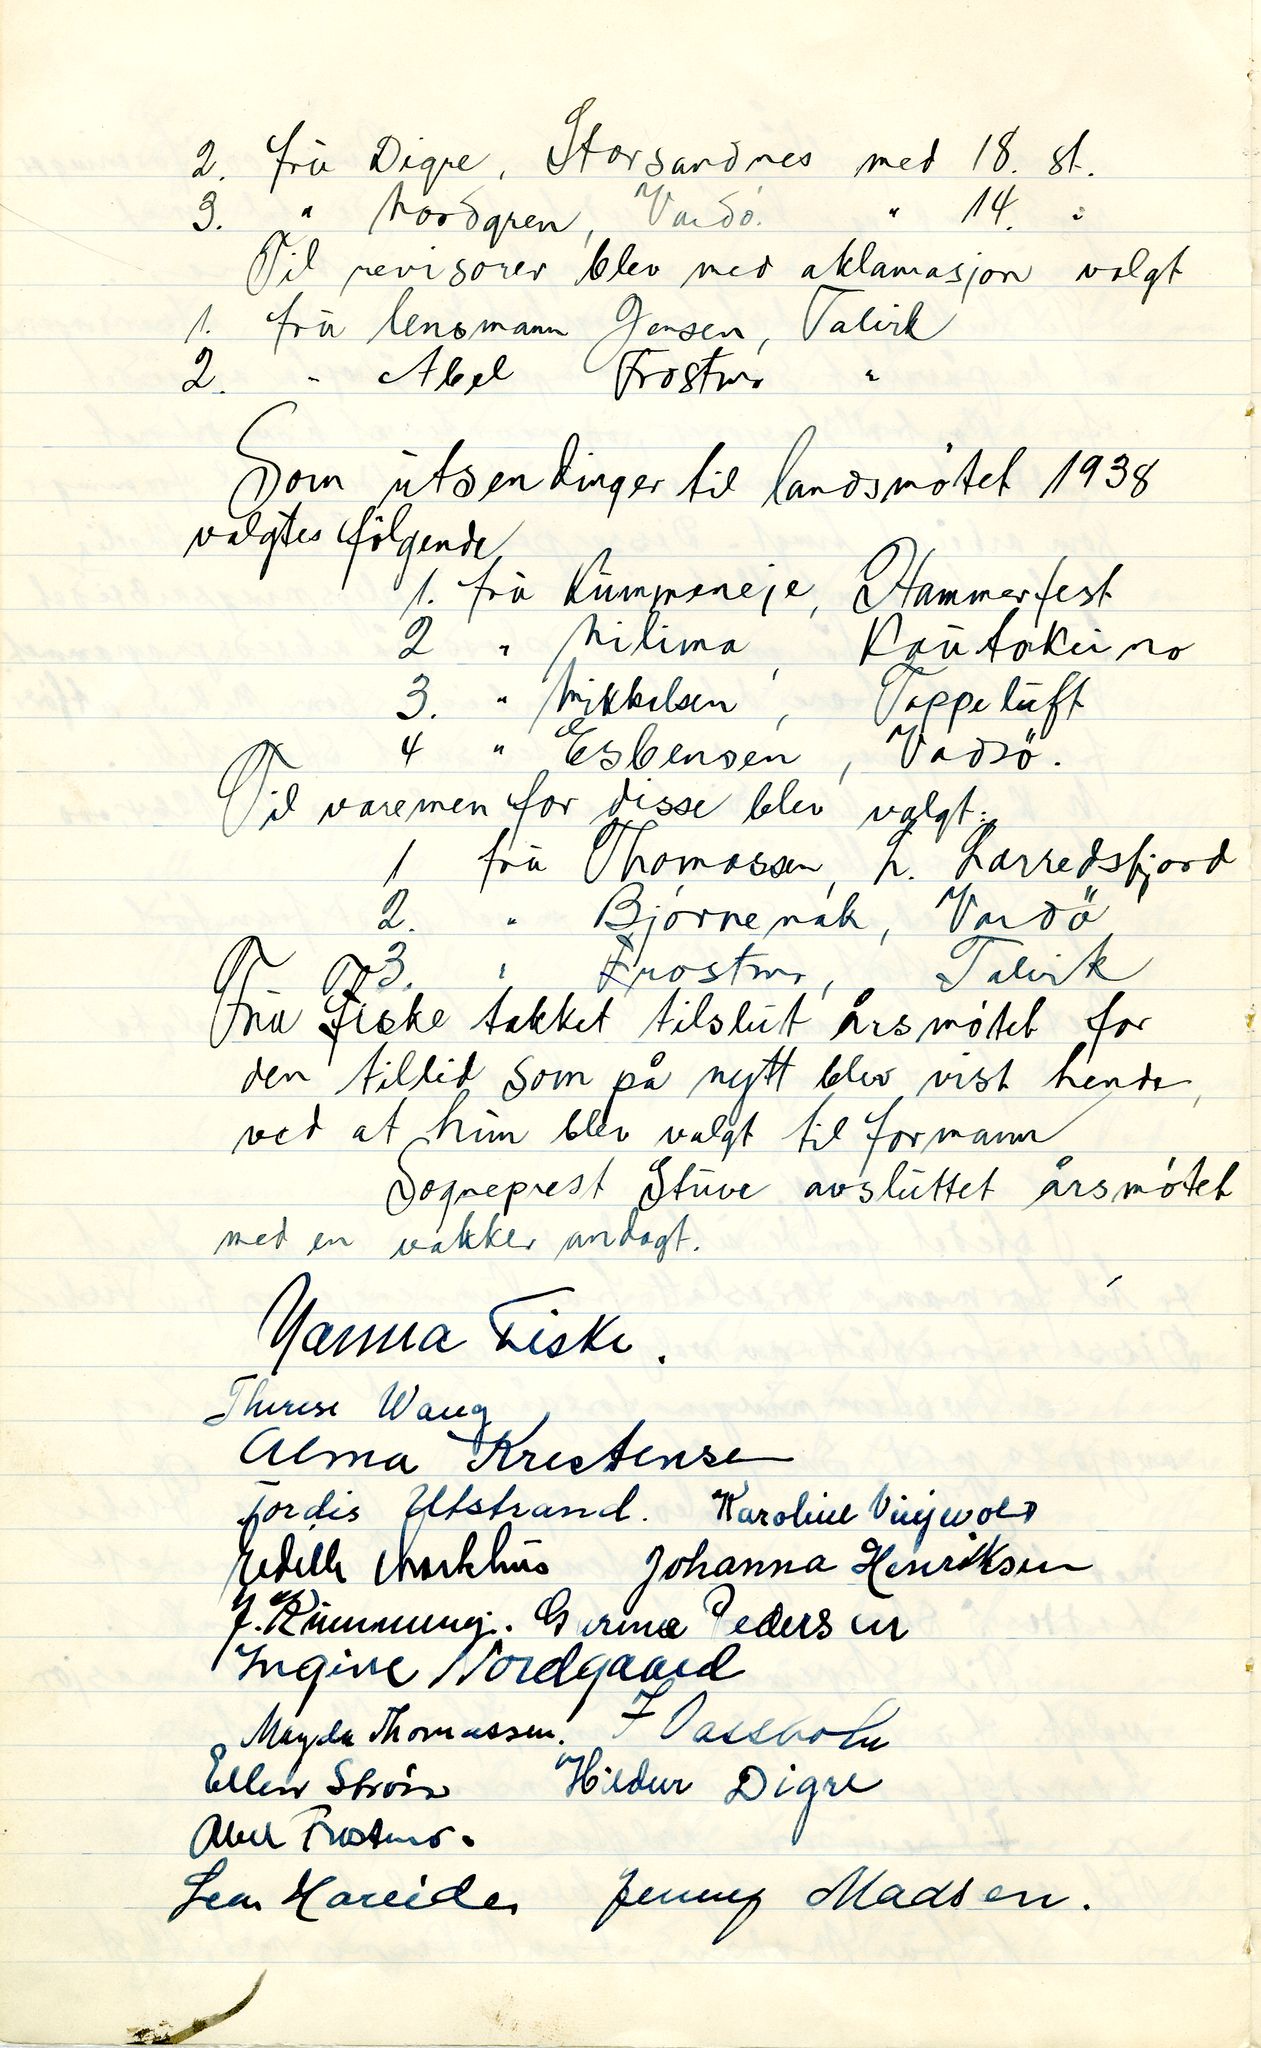 2. frü Digre, Storsandnes med 18. st.
3. " Nordgren, Vardö. " 14. "
Til revisorer blev med aklamasjon valgt
1. frü lensmann Jensen, Talvik
2. " Abel Frostmo "
Som ütsendinger til landsmötet 1938
valgtes fölgende
1. frü Kümmeneje, Hammerfest
2 " Nilima, Kaütokeino
3. " Mikkelsen, Toppelüft
4 " Esbensen, Vadsö.
Til varemen for disse blev valgt:
1 frü Thomassen, L. Lerredsfjord
2. " Bjørnenak, Vardö
3. " Frostmo, Talvik
Frü Fiske takket tilslüt årsmötet for
den tillid som på nytt blev vist hende,
ved at hün blev valgt til formann
Sogneprest Stüve avslüttet årsmötet
med en vakker andagt.
Hanna Fiske.
Therese Waug
Alma Krestensen
Tordis Utstrand. Karoline Viejvold
Markhüs Johanna Henriksen
J. Kümmenej. Gurine Pedersen
Ingine Nordgaard
Magda Thomassen. J Vassbotn
Ellen Ström Hildur Digre
Abel Frostmo.
Lea Hareide, Jenny Madsen.